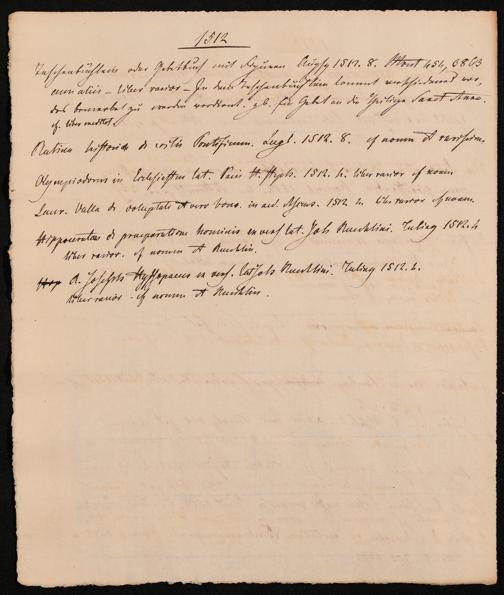 1512
Taschenbüchlein oder Gebetbuch mit Figuren Augsp 1512. 8.
cum aliis – liber rarior – In dem Taschenbüchlein kommt verschiedenes vor,
das bemerkt zu werden verdient, z.b. ein Gebet an die heilige Sanct Anna.
cf.
historica de Pontificum. Lugd. 1512. 8. cf nomen
Olympiodorus in Ecclesiasten lat. Paris H. Steph. 1512. 4. liber rarior cf nomen
Laur. Valla de voluptate et vero bono. in aed. Ascens. 1512 4. liber rarior cf nomen.
Hippocrates de praeparatione hominis ex vers. lat. Joh Reuchlini. Tubing 1512. 4
liber rarior. cf nomen et Reuchlin.
R. Josephi Hyssopaeus ex vers. lat Joh Reuchlini. Tubing 1512. 4.
liber rarior. cf nomen et Reuchlin.